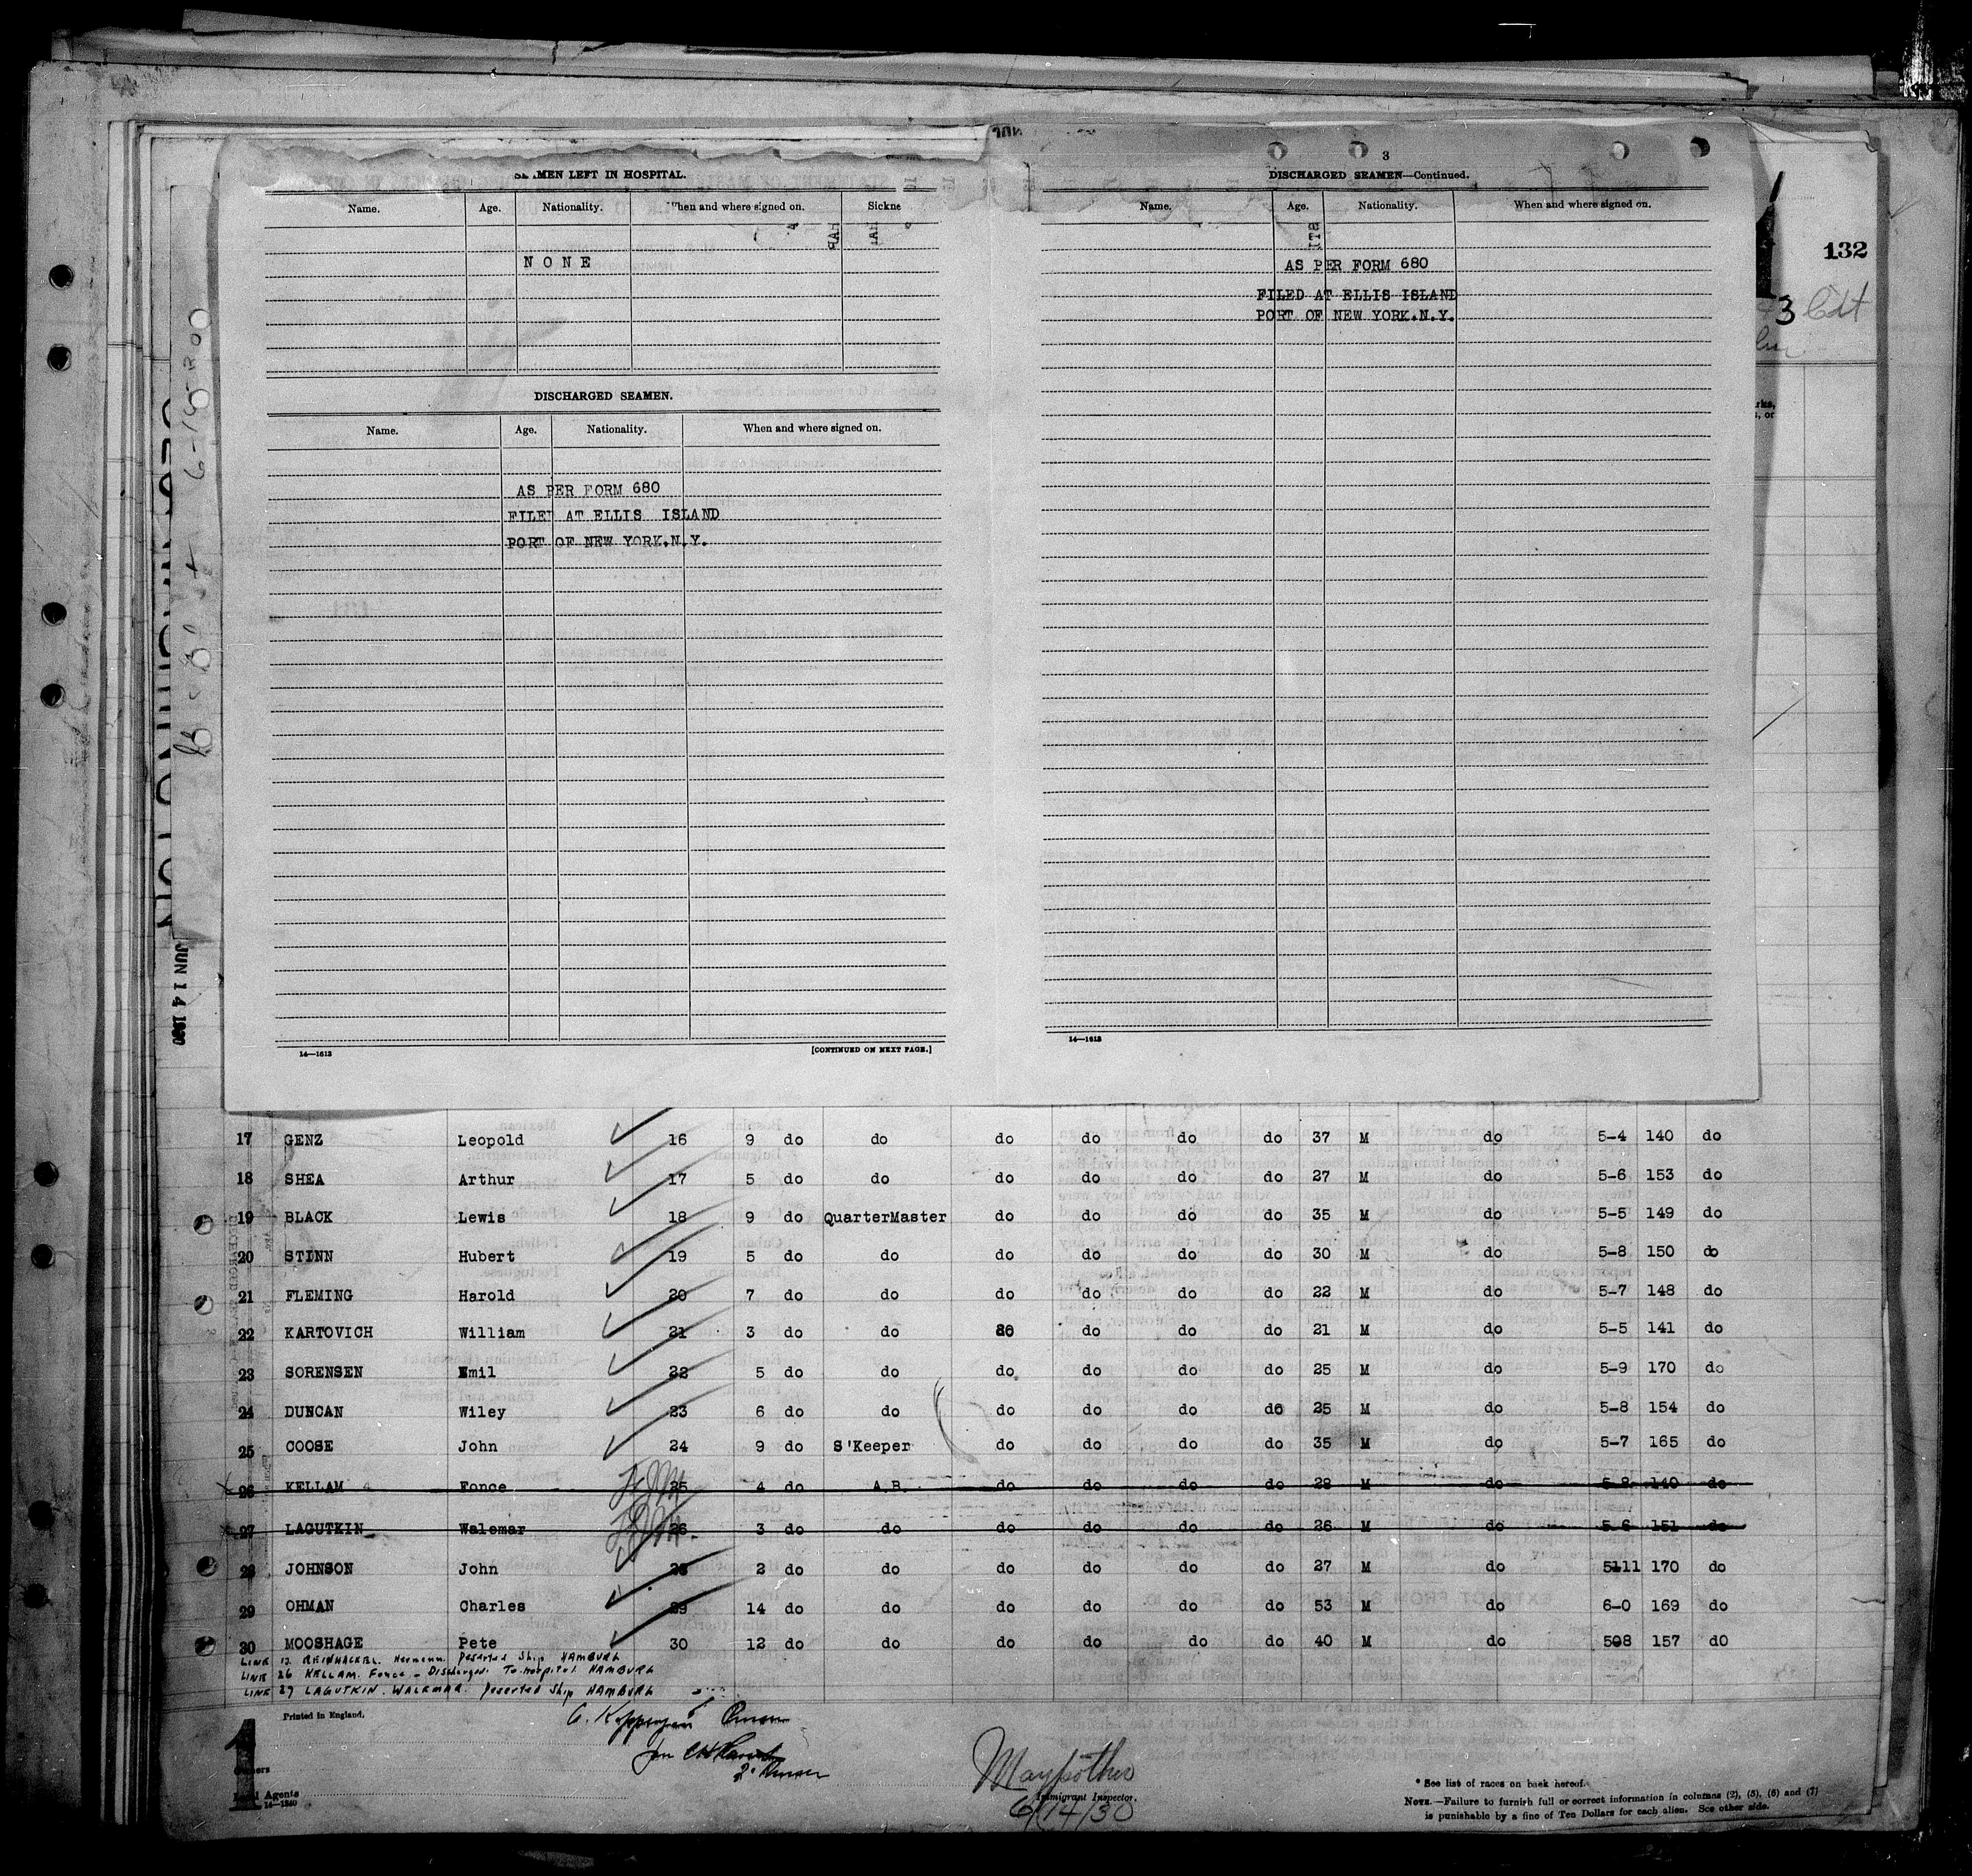 SEAMEN LEFT IN HOSPITAL.
Name. Age. Nationality. When and where signed on. Sickne
NONE
DISCHARGED SEAMEN.
Name. Age. Nationality. When and where signed on.
AS PER FORM 680
FILED AT ELLIS ISLAND
PORT OF NEW YORK.N.Y.
14—1613 [CONTINUED ON NEXT PAGE.]
3
DISCHARGED SEAMEN—Continued.
Name. Age. Nationality. When and where signed on.
AS PER FORM 680
FILED AT ELLIS ISLAND
PORT OF NEW YORK.N.Y.
14—1613
132
3
JUN 14 1930
17 GENZ Leopold 16 9 do do do do do do 37 M do 5-4 140 do
18 SHEA Arthur 17 5 do do do do do do 27 M do 5-6 153 do
19 BLACK Lewis 18 9 do QuarterMaster do do do do 35 M do 5-5 149 do
20 STINN Hubert 19 5 do do do do do do 30 M do 5-8 150 do
21 FLEMING Harold 20 7 do do do do do do 22 M do 5-7 148 do
22 KARTOVICH William 21 3 do do do do do do 21 M do 5-5 141 do
23 SORENSEN Emil 22 5 do do do do do do 25 M do 5-9 170 do
24 DUNCAN Wiley 23 6 do do do do do do 25 M do 5-8 154 do
25 COOSE John 24 9 do S'Keeper do do do do 35 M do 5-7 165 do
26 KELLAM Fonce 25 4 do A.B. do do do do 28 M do 5-8 140 do
27 LAGUTKIN Walemar 26 3 do do do do do do 26 M do 5-6 151 do
28 JOHNSON John 28 2 do do do do do do 27 M do 5-11 170 do
29 OHMAN Charles 29 14 do do do do do do 53 M do 6-0 169 do
30 MOOSHAGE Pete 30 12 do do do do do do 40 M do 508 157 dO
LINE 12 REINHACKEL. Hermann Deserted Ship HAMBURG
LINE 26 KELLAM. Fonce - Discharged To Hospital HAMBURG
LINE 27 LAGUTKIN. WALEMAR. Deserted Ship HAMBURG
Printed in England.
1
Owners
Local Agents
14—1240
Immigrant Inspector.
6/14/30
* See list of races on back hereof.
NOTE.—Failure to furnish full or correct information in columns (2), (5), (6) and (7)
is punishable by a fine of Ten Dollars for each alien. See other side.